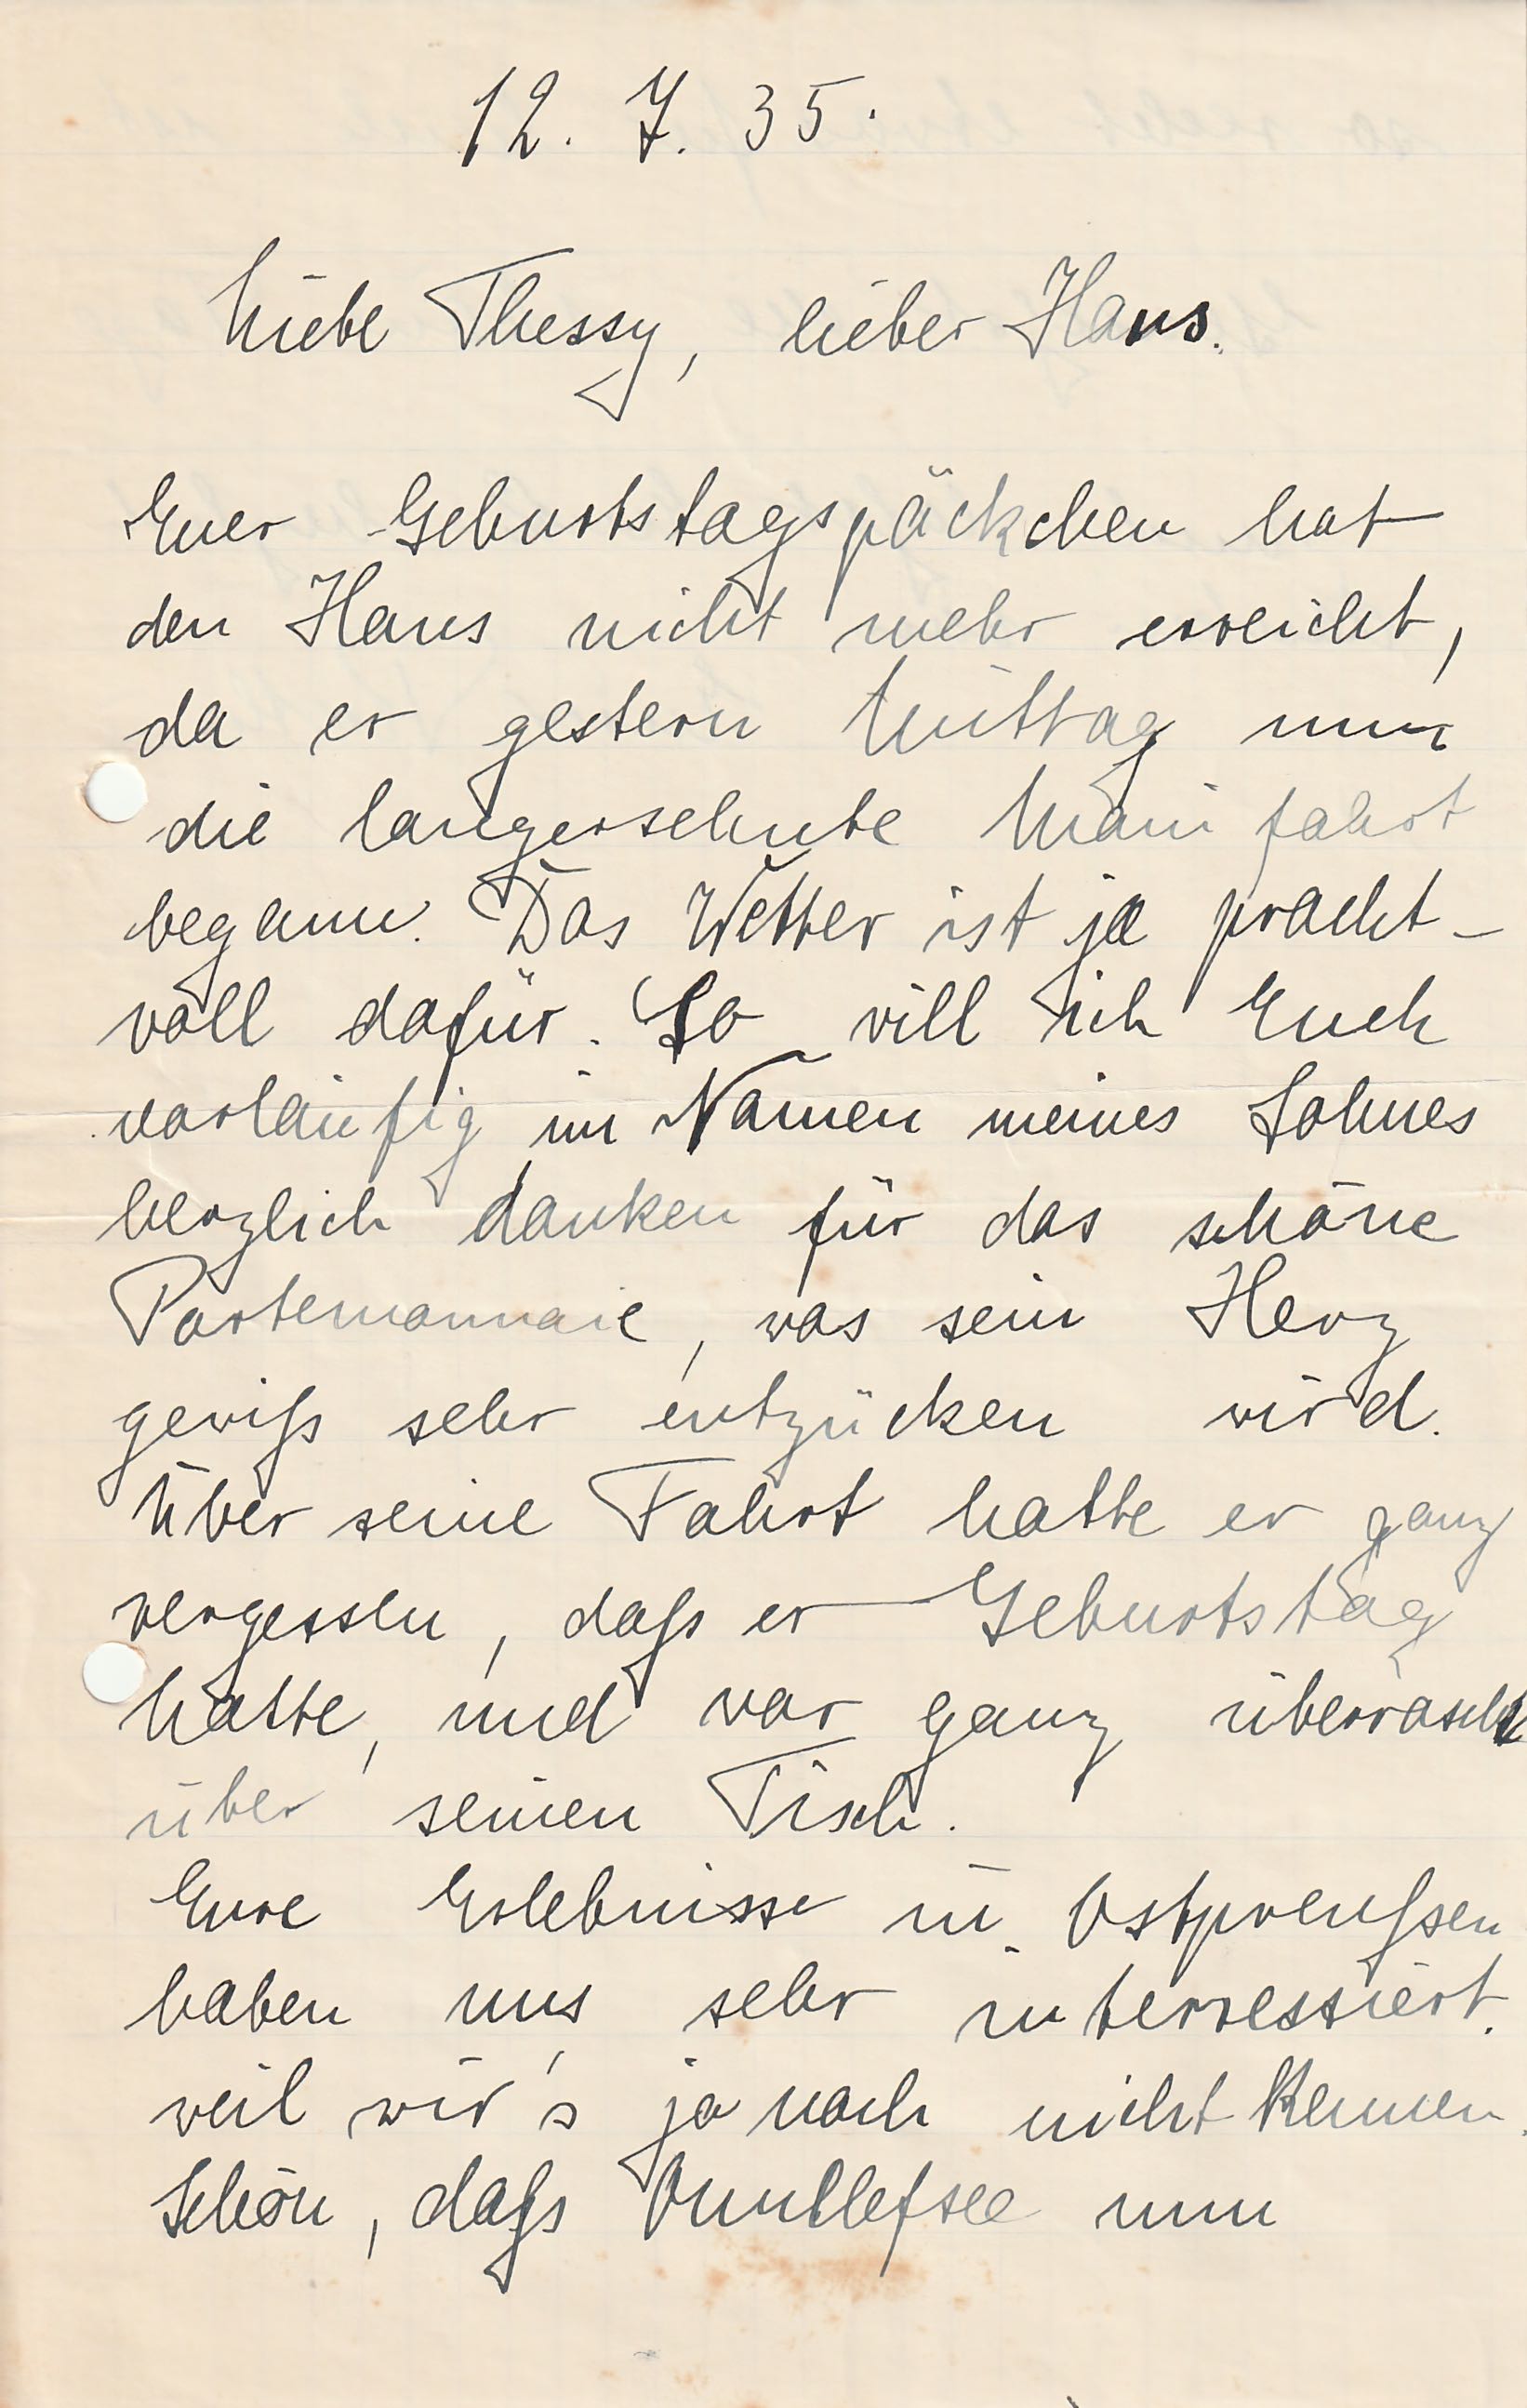 12. 7. 35.
Liebe Thessy, lieber Hans.
Euer Geburtstagspäckchen hat
den Hans nicht mehr erreicht,
da er gestern Mittag nun
die langersehnte Mainfahrt
begann. Das Wetter ist ja pracht-
voll dafür. So will ich Euch
vorläufig im Namen meines Sohnes
herzlich danken für das schöne
Portemonnaie, was sein Herz
gewiß sehr entzücken wird.
Über seine Fahrt hatte er ganz
vergessen, daß er Geburtstag
hatte, und war ganz überrascht
über seinen Tisch.
Eure Erlebnisse in Ostpreußsen
haben uns sehr interressiert.
weil wir's ja noch nicht kennen.
Schön, daß nun